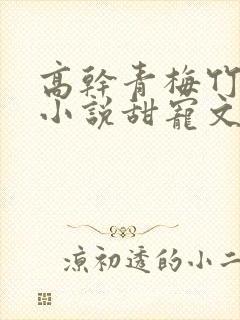 高幹青梅竹
小說甜寵文
涼初透的小二